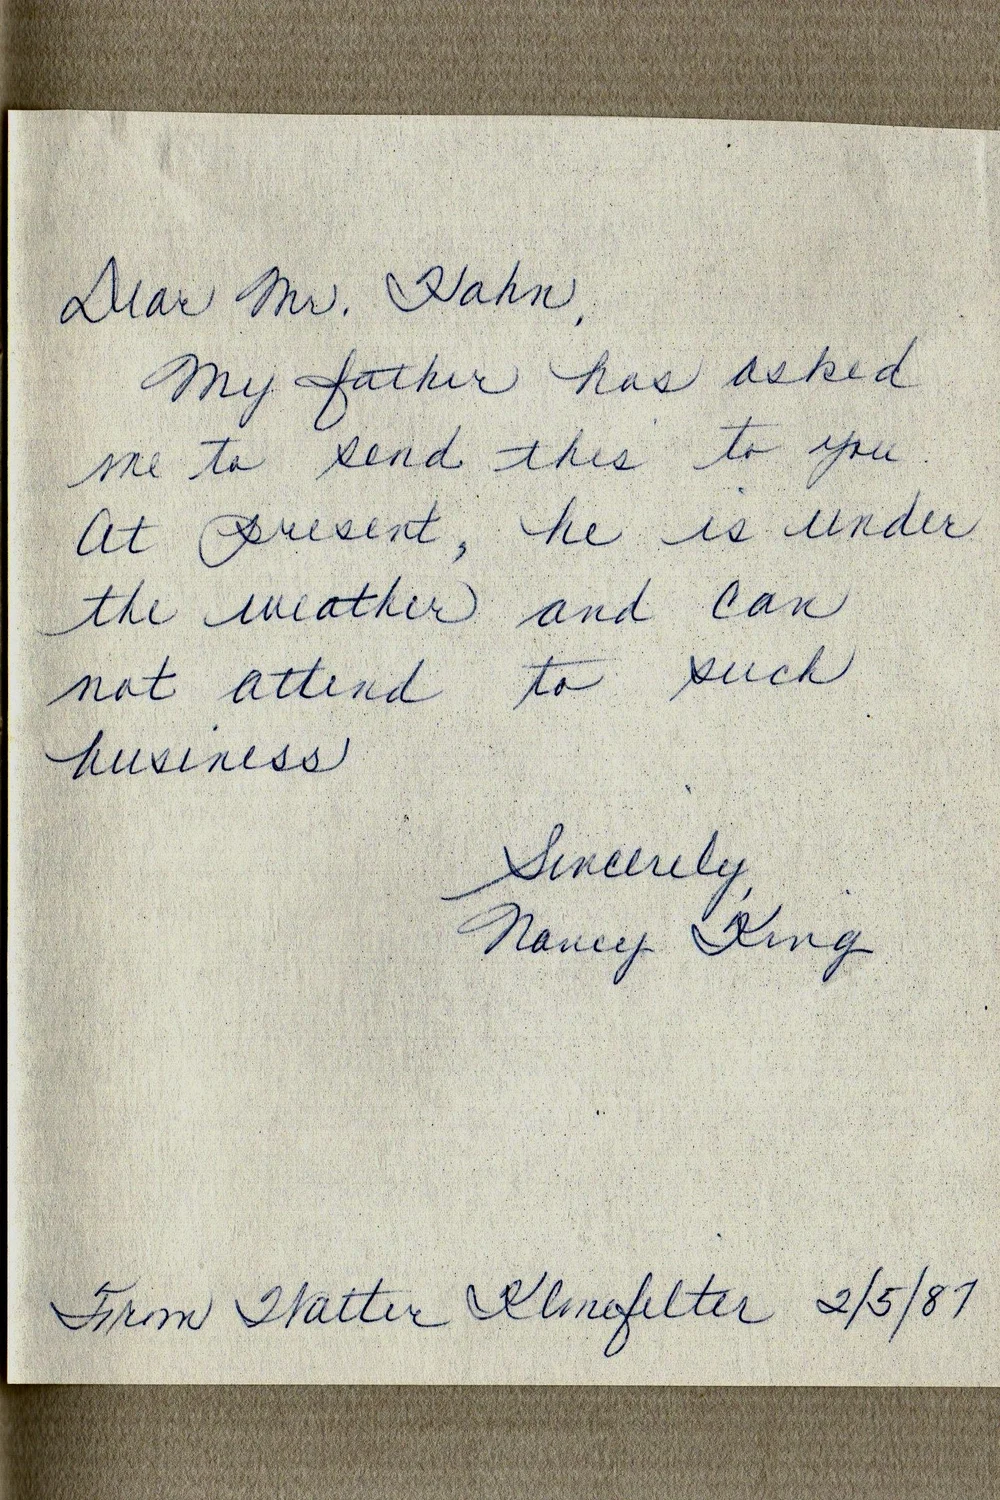 Dear Mr. Hahn,
My father has asked
me to send this to you.
At present, he is under
the weather and can
not attend to such
business
Sincerely,
Nancy King
From Walter Klinefelter 2/5/87